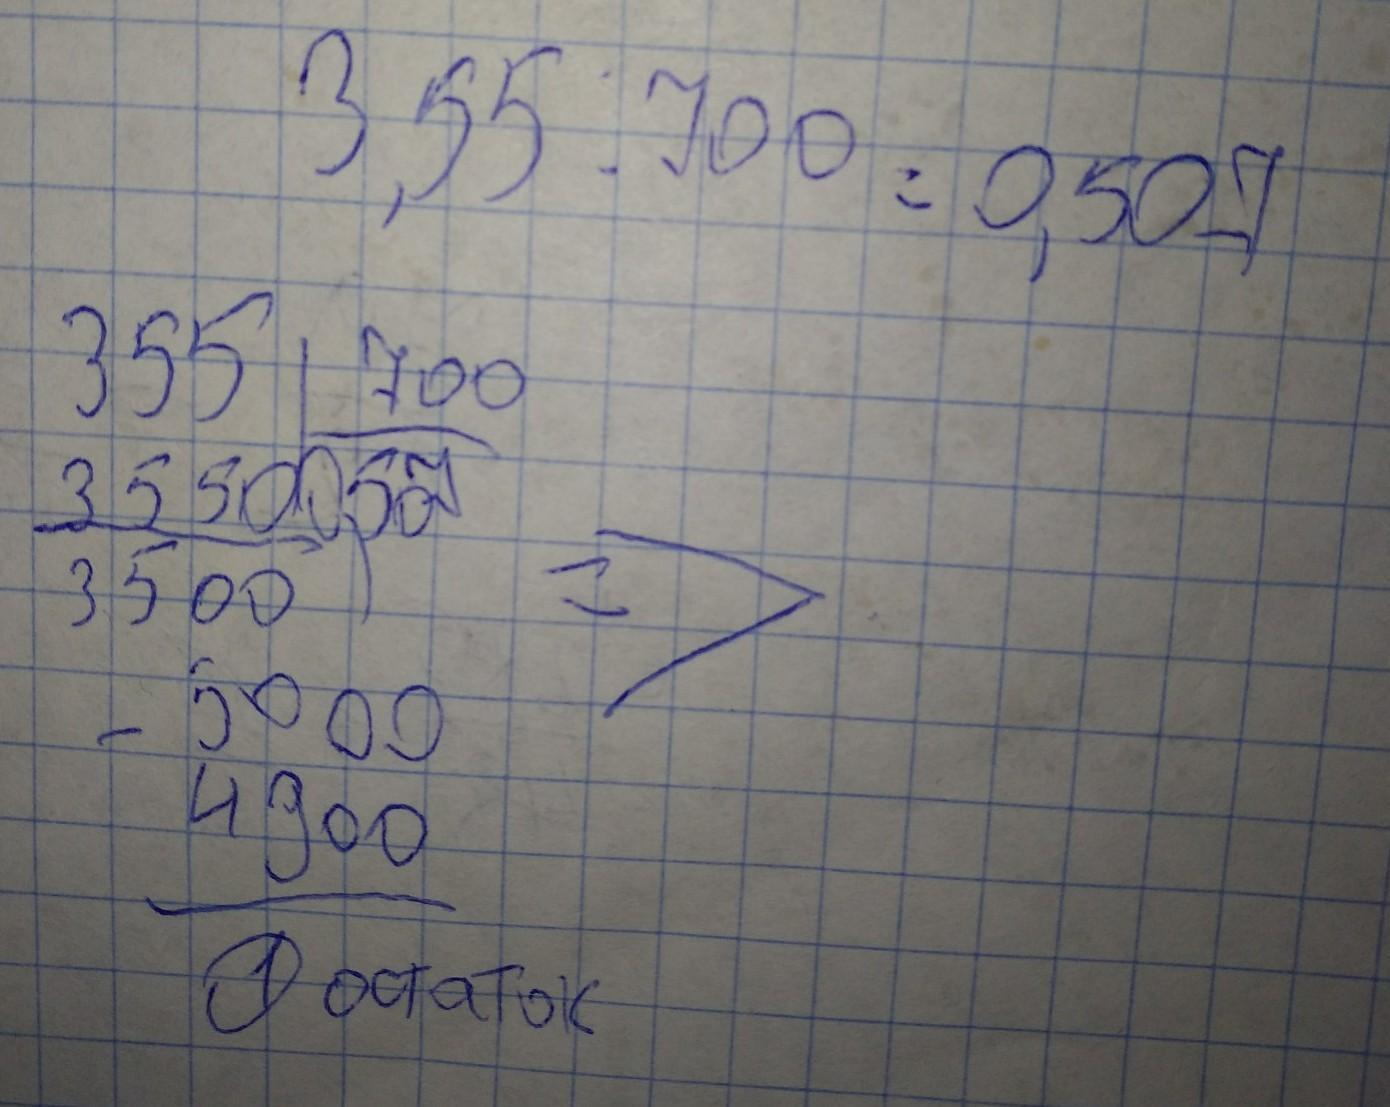 3,55 : 700 = 0,507
355 | 700
3550 0,507
3500
=>
- 5000
4900
1 остаток